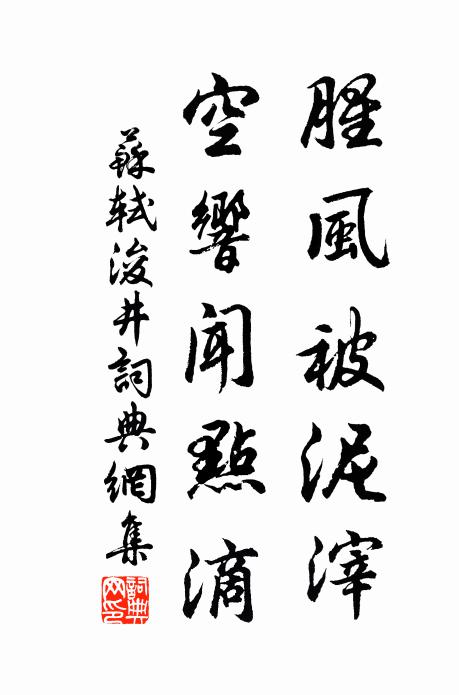 腥風被泥滓
空響聞點滴
蘇軾浚井詞典網集
詞典網印